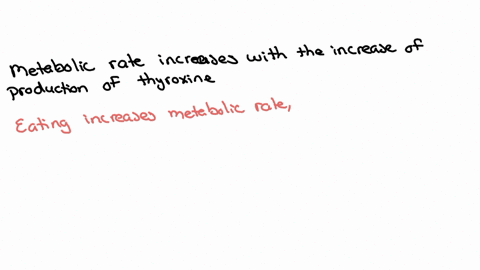 Metabolic rate increases with the increase of
production of thyroxine
Eating increases metabolic rate,